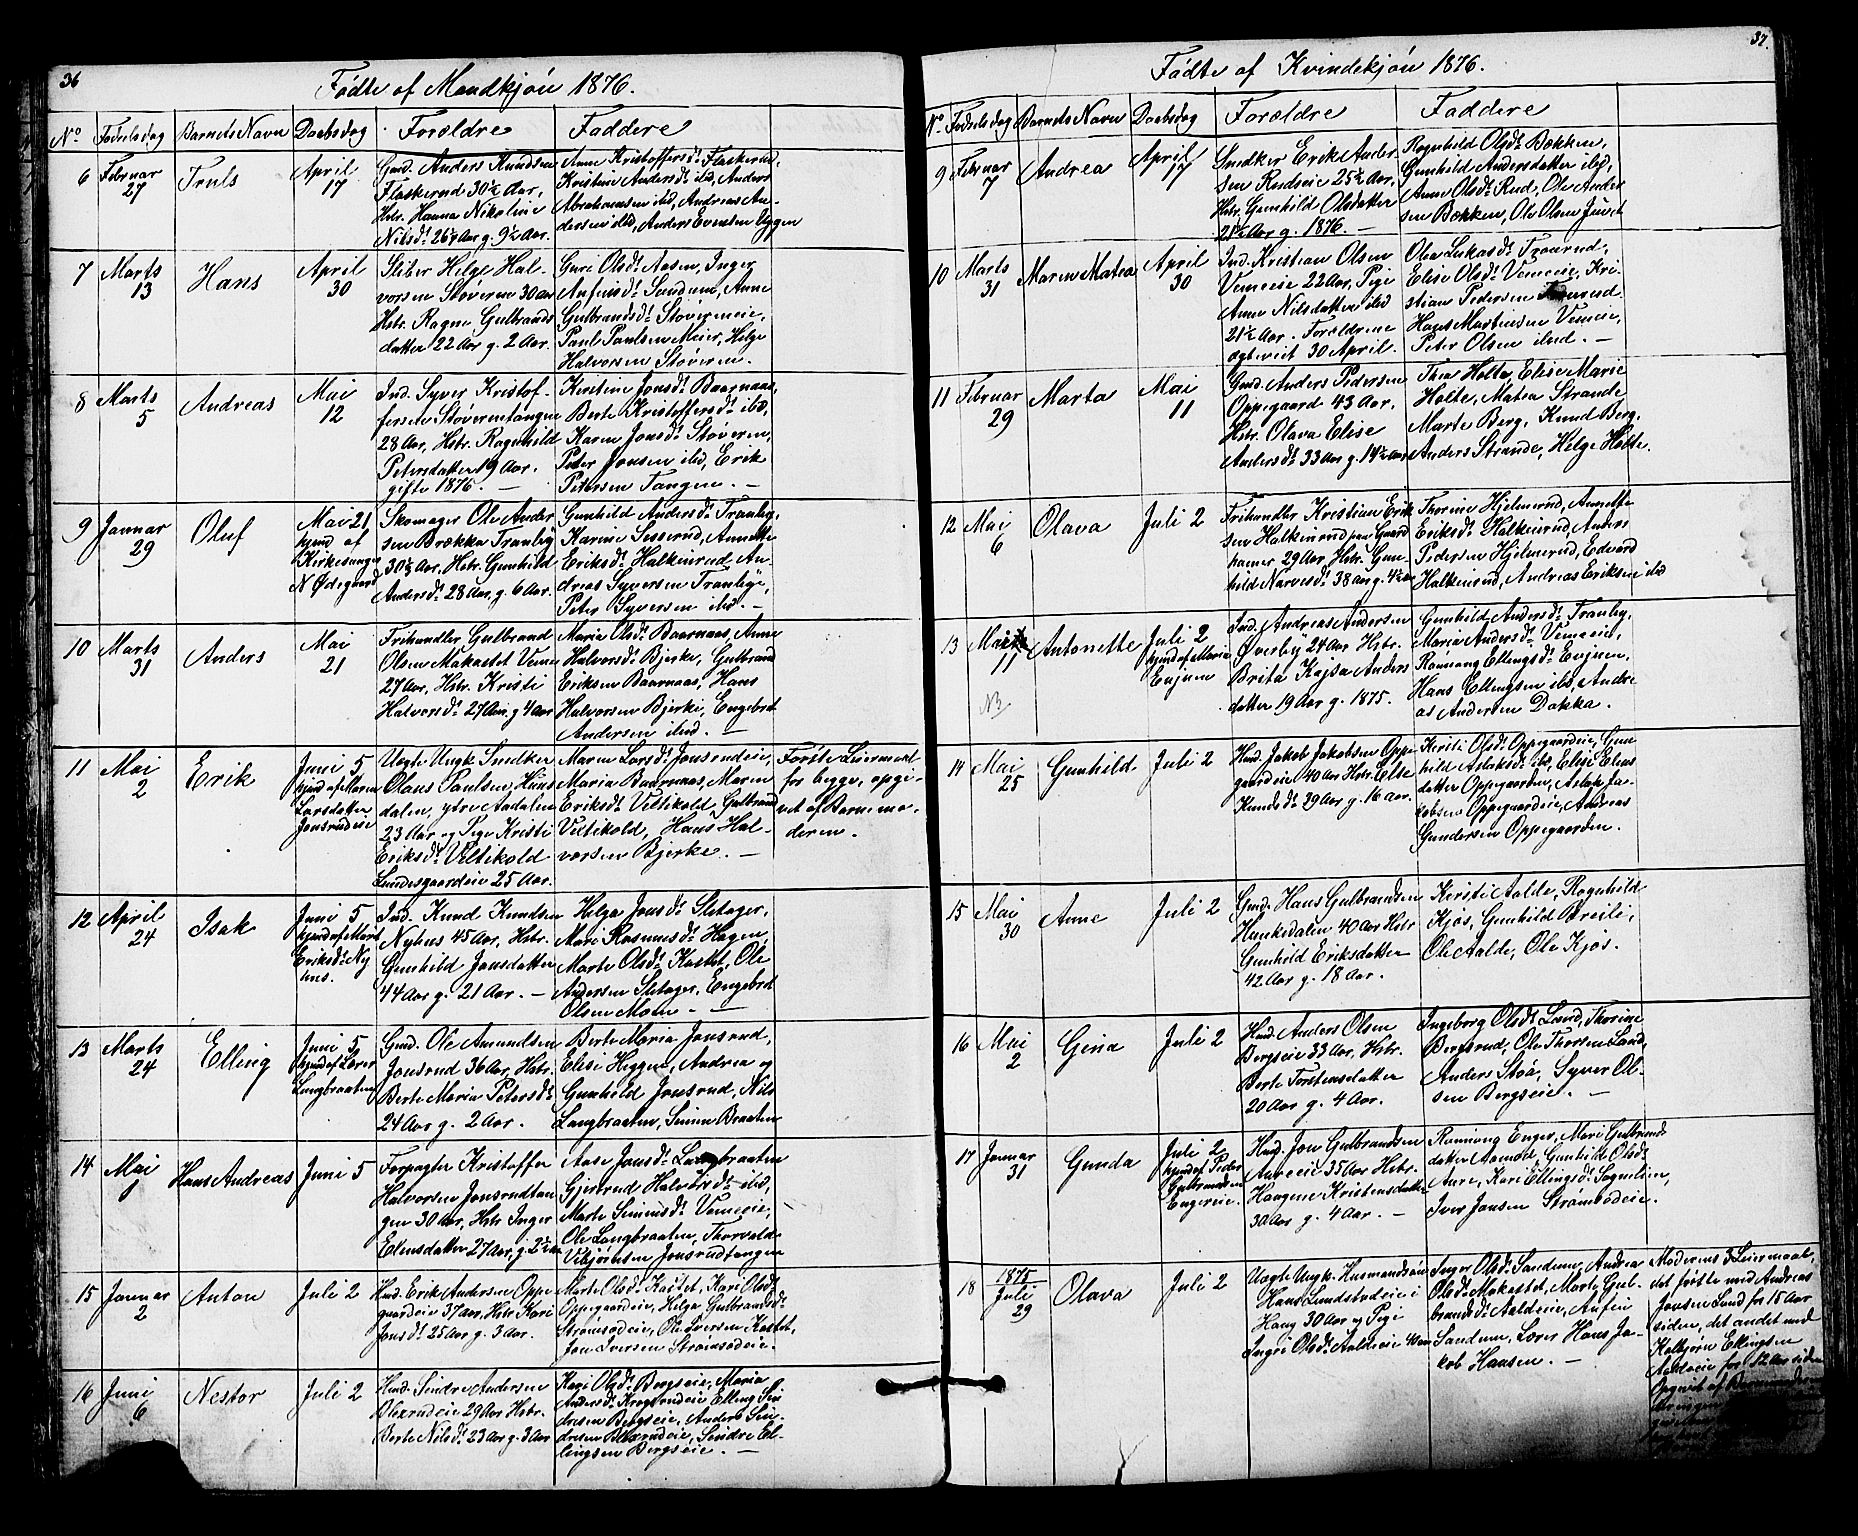 36
Fødte af Mandkjøn 1876.
No. Fødselsdag Barnets Navn Daabsdag Forældre Faddere
6 Februar 27 Truls April 17
Gmd. Anders Knudsen
Flaskerud 30½ Aar,
Hstr. Hanna Nikoline
Nilsd. 26½ Aar g. 9½ Aar.
Anne Kristoffersd. Flaskerud,
Kristine Andersd. ibid, Anders
Abrahamsen ibid, Andreas An-
dersen ibid, Anders Evensen Byggen
7 Marts 13 Hans April 30
Sliber Helge Hal-
vorsen Støveren 30 Aar
Hstr. Ragne Gulbrands
datter 22 Aar g. 2 Aar.
Guri Olsd. Aasen, Inger
Anfinsd. Sandum, Anne
Gulbrandsd. Støverneie,
Paul Paulsen Meier, Helge
Halvorsen Støveren.
8 Marts 5 Andreas Mai 12
Ind. Syver Kristof-
fersen Støverentangen
28 Aar, Hstr. Ragnhild
Petersdatter 19 Aar.
gifte 1876. —
Kirstine Jonsd. Baarnaas,
Berte Kristoffersd. ibid,
Karen Jonsd. Støveren,
Peter Jonsen ibid, Erik
Petersen Tangen. —
9 Januar 29 Oluf
Mai 21
hjmd af
Kirkesanger
N Ødegaard
Skomager Ole Ander
sen Brække Tranby
30½ Aar, Hstr. Gunhild
Andersd. 28 Aar, g. 6 Aar.
Gunhild Andersd. Tranby,
Karine Sisserud, Annette
Eriksd. Halkinrud, An-
dreas Syversen Tranbye,
Peter Syversen ibid. —
10 Marts 31 Anders Mai 21
Frihandler Gulbrand
Olsen Makastet Veme
27 Aar, Hstr. Kristi
Halvorsd. 27 Aar, g 4 Aar
Maria Olsd. Baarnaas, Anne
Halvorsd. Bjerke, Gulbrand
Eriksen Baarnaas, Hans
Halvorsen Bjerke, Engebret
Andersen ibid. —
11 Mai 2 Erik
Juni 5
hjmd af Maren
Larsdatter
Jonsrudeie
Uægte Ungk. Snedker
Olaus Paulsen, Huns
dalen, ytre Aadalen
23 Aar og Pige Kristi
Eriksd. Veltikold
Lundesgaardeie 25 Aar.
Maren Larsd. Jonsrudeie,
Maria Baarnaas, Maren
Eriksd. Veltikold, Gulbrand
Veltikold, Hans Hal-
vorsen Bjerke. —
Første Leiermaal
for begge, opgi-
vet af Barnemo-
deren.
12 April 24 Isak
Juni 5
hjmd af Marit
Eriksd. Ny
hus.
Ind. Knud Knudsen
Nyhus 45 Aar, Hstr.
Gunhild Jonsdatter
44 Aar g. 21 Aar. —
Helga Jonsd. Sletager,
Mari Rasmusd. Hagen,
Marte Olsd. Kastet, Ole
Andersen Sletager, Engebret
Olsen Moen. —
13 Marts 24 Elling
Juni 5
hjmd af Lærer
Langbraaten
Gmd. Ole Amundsen
Jonsrud 36 Aar, Hstr.
Berte Maria Petersd.
24 Aar g. 2 Aar.
Berte Maria Jonsrud,
Elise Heggen, Andrea og
Gunhild Jonsrud, Nils
Langbraaten, Simen Braaten
14 Mai 1 Hans Andreas Juni 5
Forpagter Kristoffer
Halvorsen Jonsrudtan
gen 30 Aar, Hstr. Inger
Edensdatter 27 Aar, g. 2½ Aar
Aase Jonsd. Langbraaten
Gjertrud Halvorsd. ibid,
Marte Simensd. Vemeeie,
Ole Langbraaten, Thorvald
Vebjørnsen Jonsrudtangen
15 Januar 2 Anton Juli 2
Hmd. Erik Andersen Oppe
gaardeie 37 Aar, Hstr. Kari
Jonsd. 25 Aar g. 3 Aar.
Marte Olsd. Kastet, Kari Olsd.
Oppegaardeie, Helga Gulbrandsd.
Strømsodeie, Ole Iversen Kastet,
Jon Iversen Strømsodeie.
16 Juni 6 Nestor Juli 2
Hmd. Sindre Andersen
Blexrudeie 29 Aar Hstr.
Berte Nilsd. 23 Aar g. 3 Aar
Kari Olsd. Bergseie, Maria
Andersd. Kragsrudeie, Elling Sin
dresen Bergseie, Anders Sin-
dresen Blexrudeie, Sindre El-
lingsen Bergseie. —
37.
Fødte af Kvindekjøn 1876.
No. Fødselsdag Barnets Navn Daabsdag Forældre Faddere
9 Februar 7 Andrea April 17
Snedker Erik Ander-
sen Rudseie 25½ Aar,
Hstr. Gunhild Olsdatter
21½ Aar g. 1876. —
Ragnhild Olsd. Bækken,
Gunhild Andersdatter ibid,
Anne Olsd. Rud, Ole Ander
sen Bækken, Ole Olsen Juvet
10 Marts 31 Maren Matea April 30
Ind. Kristian Olsen
Vemeeie 22 Aar, Pige
Anne Nilsdatter ibid
21½ Aar. Forældrene
ægteviet 30 April.
Olea Lukasd. Traarud,
Elise Olsd. Vemeeie, Kri-
stian Pedersen Traarud
Hans Martinsen Vemeeie,
Peter Olsen ibid. —
11 Februar 29 Marta Mai 11
Gmd. Anders Pedersen
Oppegaard 43 Aar,
Hstr. Olava Elise
Andersd. 33 Aar g. 14½ Aar
Thea Holte, Elise Marie
Holte, Matea Strande
Marte Berg, Knud Berg,
Anders Strande, Helge Holte.
12 Mai 6 Olava Juli 2
Frihandler Kristian Erik
sen Halkinrud paa Gaard
hamar 29 Aar, Hstr. Gun
hild Narvesd. 38 Aar g. 4½ Aar
Thorine Hjelmerud, Annette
Eriksd. Halkinrud, Anders
Pedersen Hjelmerud, Edvard
Halkinrud, Andreas Eriksen ibid
13 Mai 11 Antonette
Juli 2
hjmd af Maria
Enjuen
NB
Ind. Andreas Andersen
Øverby 24 Aar Hstr.
Brita Kajsa Anders
datter 19 Aar g. 1875.
Gunhild Andersd. Tranby,
Maria Andersd. Vemeeie,
Rannaug Ellingsd. Enjuen,
Hans Ellingsen ibid, Andre
as Andersen Dokka.
14 Mai 25 Gunhild Juli 2
Hmd. Jakob Jakobsen Oppe
gaardeie 40 Aar Hstr. Else
Knudsd. 29 Aar g. 16 Aar.
Kersti Olsd. Oppegaardeie, Gun
hild Aslaksd. ibd, Elise Elens
datter Oppegaarden, Aslak Ja-
kobsen Oppegaardeie, Andreas
Gundersen Oppegaarden.
15 Mai 30 Anne Juli 2
Gmd. Hans Gulbrandsen
Hunkedalen 40 Aar Hstr
Gunhild Eriksdatter
42 Aar g. 18 Aar.
Kersti Aalde, Ragnhild
Kjøs, Gunhild Breili,
Ole Aalde, Ole Kjøs.
16 Mai 2 Gina Juli 2
Hmd. Anders Olsen
Bergseie 33 Aar, Hstr.
Berte Torstensdatter
20 Aar g. 4 Aar.
Ingeborg Olsd. Lund, Thorine
Bergsrud, Ole Thorsen Lund,
Anders Stoa, Syver Ol-
sen Bergseie. —
17 Januar 31 Gunda
Juli 2
hjmd af Peder
Gulbrandsen
Engereie.
Hmd. Jon Gulbrandsen
Aureeie 35 Aar Hstr.
Haagene Kristensdatter
30 Aar g. 4 Aar. —
Rannaug Enger, Mari Gulbrands
datter Aamod, Gunhild Olsd.
Aure, Kari Ellingsd. Sognlien,
Iver Jonsen Strømsodeie.
18 1875 Juli 29 Olava Juli 2
Uægte Ungk. Husmandsøn
Hans Lundstadeie i
Haug 30 Aar og Pige
Ingri Olsd. Aaldeeie 40 Aar
Inger Olsd. Sandum, Andrea
Olsd. Makastet, Marte Gul-
brandsd. Aaldeie, Anfin
Sandum, Lærer Hans Ja-
kob Hansen. —
Moderens 3 Leiermaal,
det første med Andreas
Jonsen Lund for 15 Aar
siden, det andet med
Kolbjørn Ellingsen
Aaldeeie for 12 Aar siden
Opgivet af